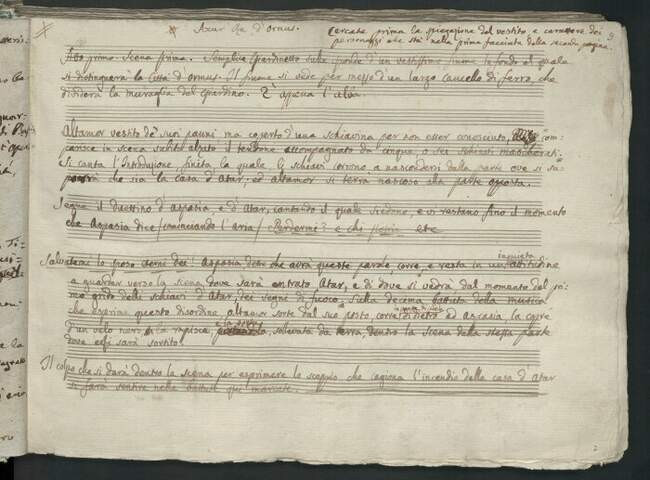 Axur Re d'ormus.
Cercate prima la spiegazione del vestito, e carattere dei
personaggi che sta nella prima facciata della seconda pagina.
Atto primo Scena prima. Semplice Giardinetto sulle sponde d'un vastissimo fiume in fondo al quale
si distinguerà la Città d'ormus. Il fiume si vede per mezzo d'un largo cancello di ferro, che
dividerà la muraglia del Giardino. È appena l'alba.
Altamor vestito de' suoi panni ma coperto d'una schiavina per non esser conosciuto, com-
parisce in scena subito alzato il tendone accompagnato da cinque, o sei schiavi mascherati.
Si canta l'Introduzione finita la quale gli schiavi corrono a nascondersi dalla parte ove si sup-
che sia la casa d'Atar; ed altamor si terrà nascoso alla parte opposta.
Segue il Duettino d'aspasia, e d'Atar, cantando il quale siedono, e vi restano fino il momento
che Aspasia dice / cominciando l'aria / Perdermi? e chi etc
lo sposo eterni dei! Aspasia detto che avrà queste parole corre, e resta in un' attitudine
inquieta
a guardar verso la scena dove sarà entrato Atar, e di dove si vedrà dal momento del pri-
mo grido delli schiavi d'Atar, dei segni di fuoco. Sulla decima battuta della musica
che esprime questo disordine, altamor sorte dal suo posto, corre di dietro ad aspasia, la copre
d'un velo nero, e la rapisce sollevata da terra, dentro la scena della stessa parte
dove esse sarà sortito.
Il colpo che si darà dentro la scena per esprimere lo scoppio che cagiona l'incendio della casa d'Atar
si farà sentire nelle battute qui marcate.
2